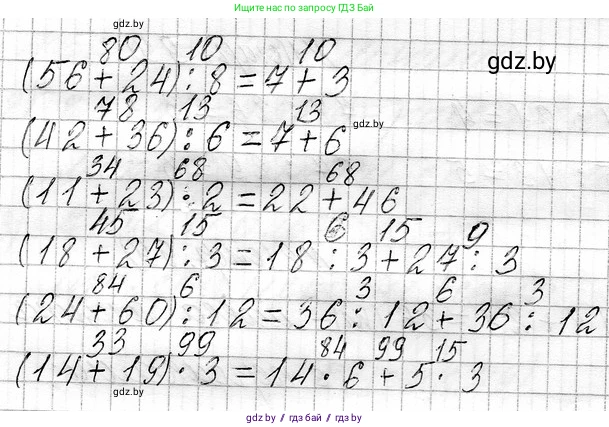 Ищите нас по запросу ГДЗ Бай
gdz.by
80 10 10
(56 + 24) : 8 = 7 + 3
gdz.by
78 13 13
(42 + 36) : 6 = 7 + 6
gdz.by
34 68 68
(11 + 23) · 2 = 22 + 46
45 15 6 15 9
(18 + 27) : 3 = 18 : 3 + 27 : 3
84 6 3 6 3
(24 + 60) : 12 = 36 : 12 + 36 : 12
33 99 84 99 15
(14 + 19) · 3 = 14 · 6 + 5 · 3
gdz.by
gdz by // гдз бай // gdz.by